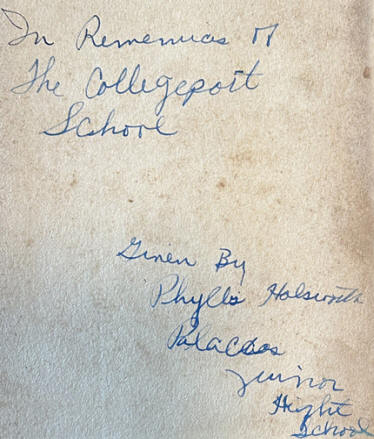 In Rememias of
The Collegeport
School
Given By
Phyllis Holsworth
Palacios
Junior
Hight
School